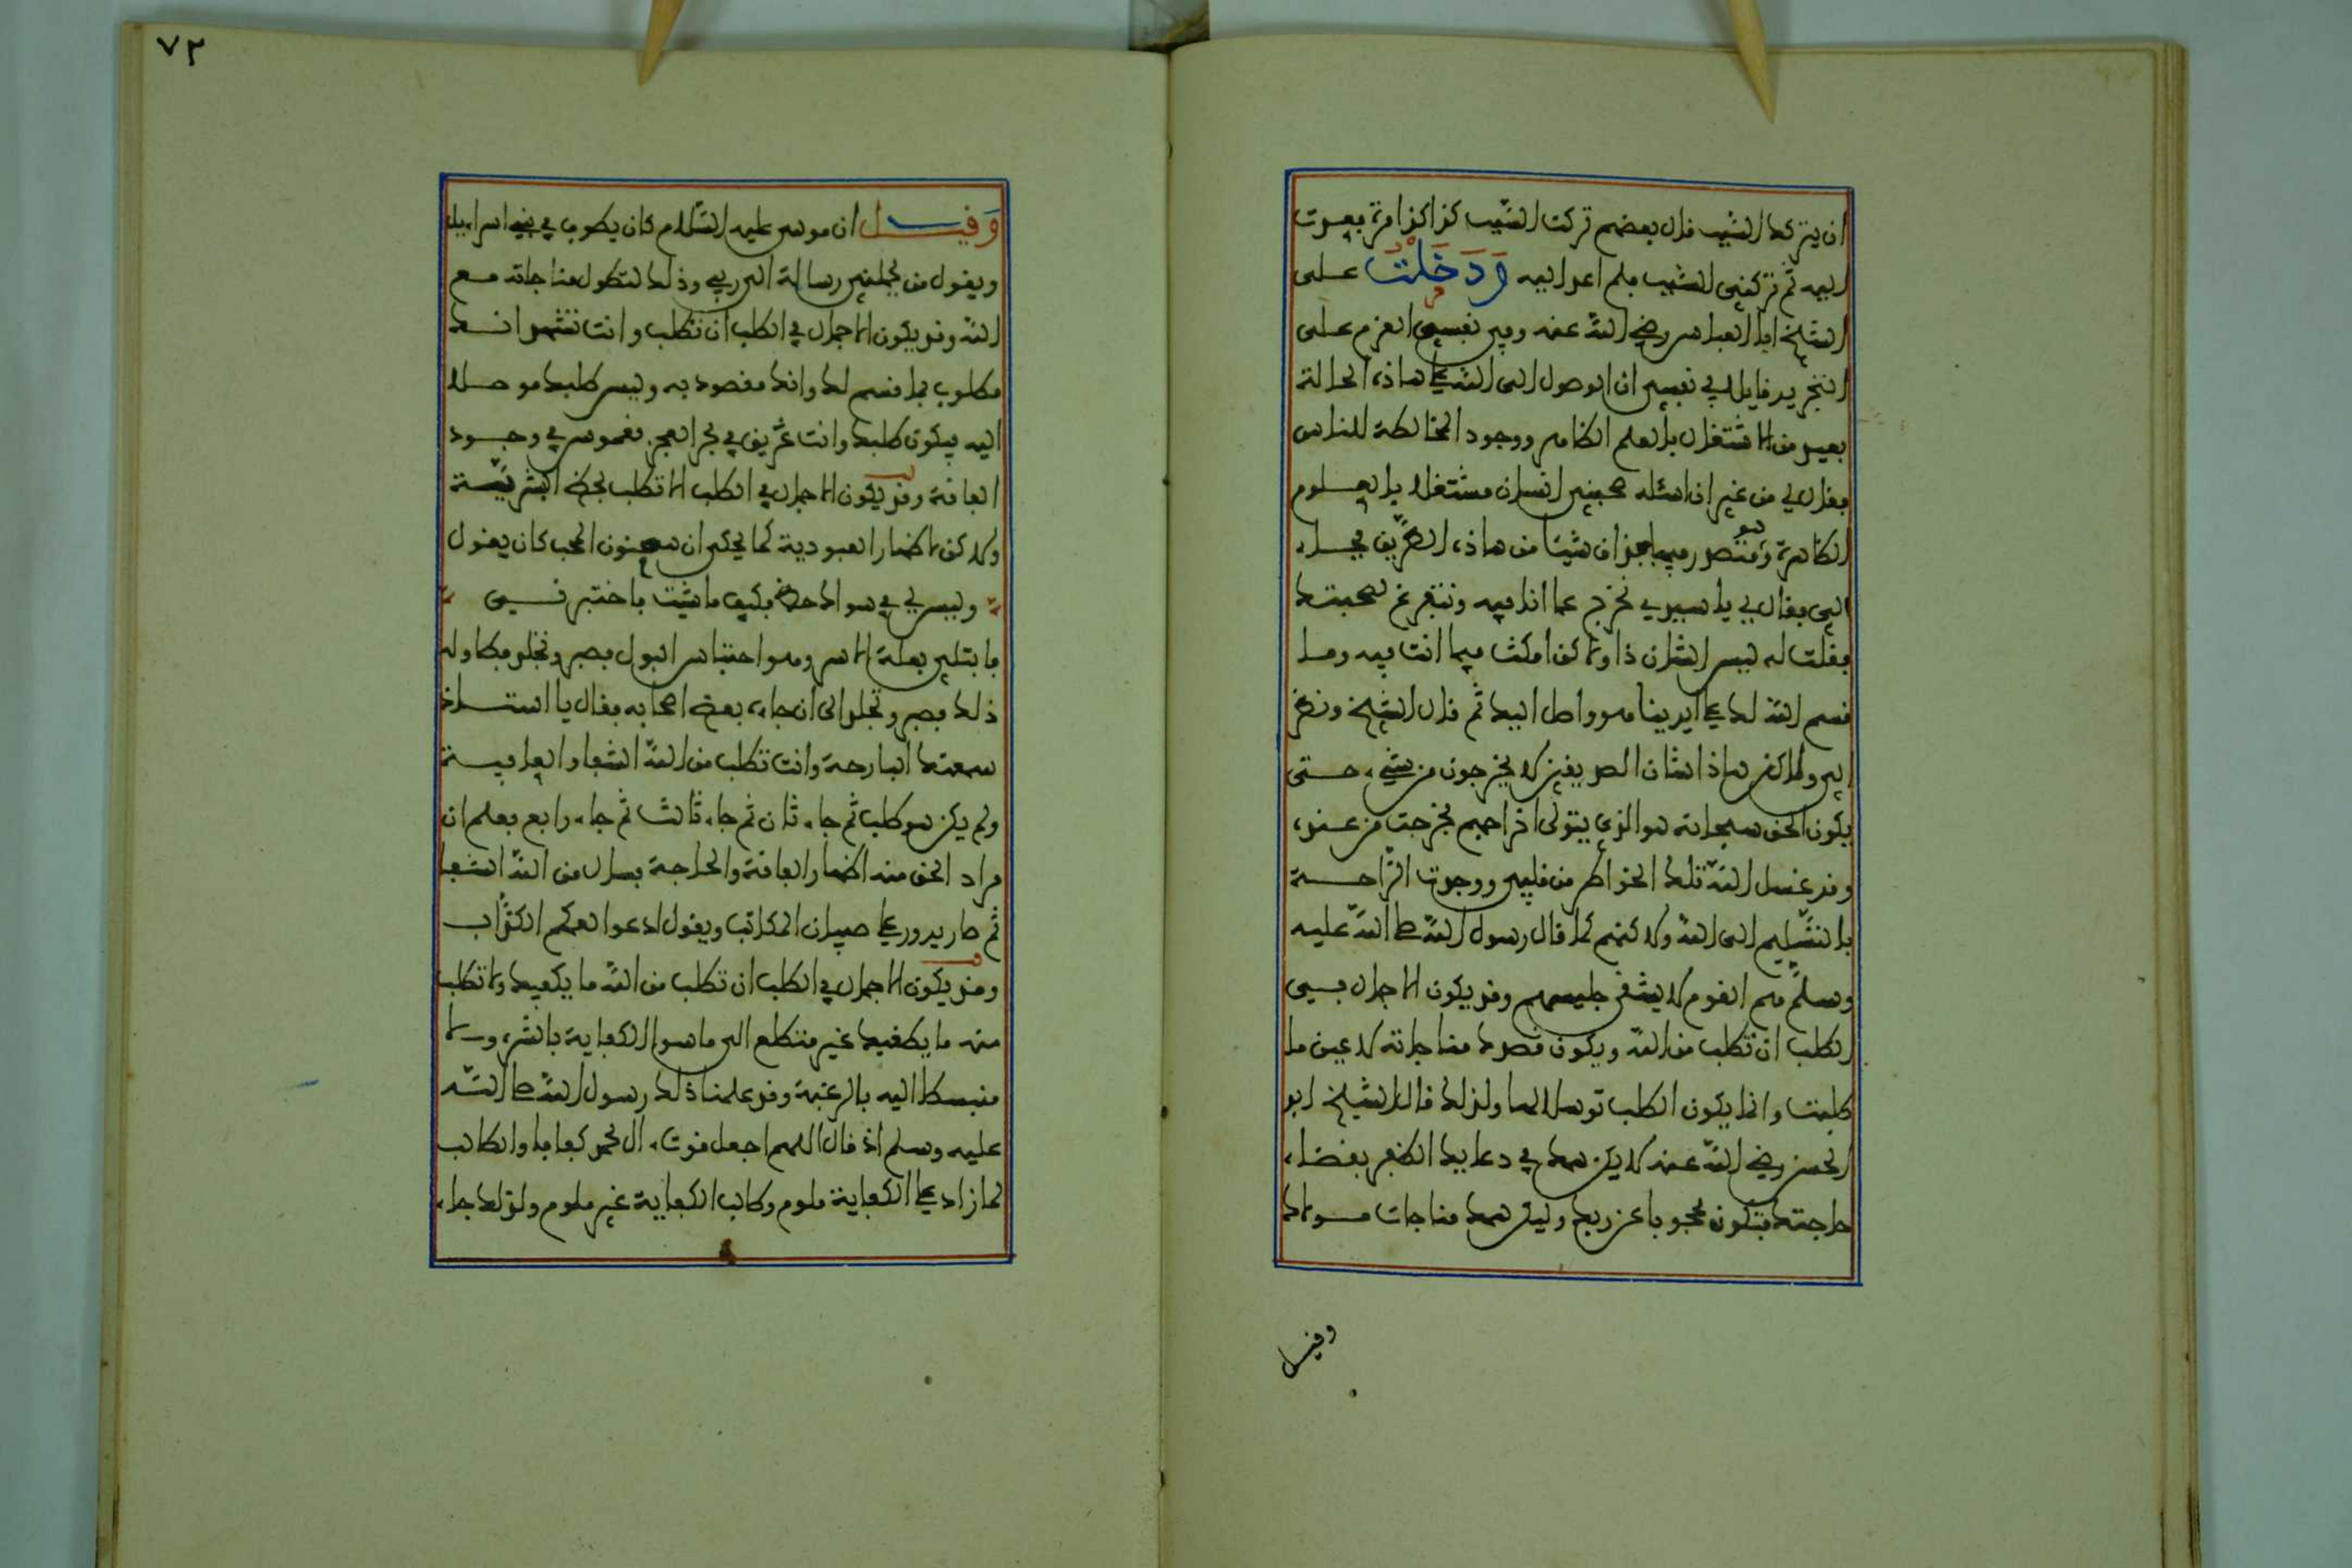 ان يتركك السبب قال بعضهم تركت السبب كذا كذا مرة فعدت
اليه ثم تركني السبب فلم اعد اليه وَدَخَلْتُ على
الشيخ ابا العباس رضي الله عنه وفي نفسي العزم على
التجريد قايلا في نفسي ان الوصول الى الله على هاذه الحالة
بعيد من الاشتغال بالعلم الظاهر ووجود المخالطة للناس
فقال لي من غير ان اسئله صحبني انسان مشتغل بالعلوم
الظاهرة وهو متصدر فيها فذاق شيئا من هاذه الطريق فجاء
الي فقال لي يا سيدي نخرج عما انا فيه ونتفرغ لصحبتك
فقلت له ليس الشان ذا ولاكن امكث فيما انت فيه وما
قسم الله لك على ايدينا هو واصل اليك ثم قال الشيخ ونظر
الي ولاكن هاذا شان الصديقين لا يخرجون من شيء حتى
يكون الحق سبحانه هو الذي يتولى اخراجهم فخرجت من عنده
وقد غسل الله تلك الخواطر من قلبي ووجدت الرَّاحة
بالتسليم الى الله ولاكنهم كما قال رسول الله صلى الله عليه
وسلم هم القوم لا يشقى جليسهم وقد يكون الاجمال في
الطلب ان تطلب من الله ويكون قصدك مناجاته لا عين ما
طلبت وانما يكون الطلب توسلا لها ولذلك قال الشيخ ابو
الحسن رضي الله عنه لا يكن همك في دعايك الظفر بقضاء
حاجتك فتكون محجوبا عن ربك وليكن همك مناجات مولاك
وقيل
٧٢
وَقيل ان موسى عليه السَّلام كان يطوف في بني اسراءيل
ويقول من يحملني رسالة الى ربي وذلك لتطول مناجاته مع
الله وقد يكون الاجمال في الطلب ان تطلب وانت تشهد انك
مطلوب بما قسم لك وانك مقصود به وليس طلبك موصلا
اليه فيكون طلبك وانت غريق في بحر العجز مغموس في وجود
الفاقة وقد يكون الاجمال في الطلب الا تطلب لحظ البشرية
ولاكن لاظهار العبودية كما يحكى ان سمنون المحب كان يقول
وليس لي في سواك حظ فكيف ما شيت فاختبرني
فابتلي بعلة الاسر وهو احتباس البول فصبر وتجلد فطاوله
ذلك فصبر وتجلد الى ان جاءه بعض اصحابه فقال يا استاذ
سمعتك البارحة وانت تطلب من الله الشفا والعافية
ولم يكن هو طلب ثم جاء ثان ثم جاء ثالث ثم جاء رابع فعلم ان
مراد الحق منه اظهار الفاقة والحاجة فسال من الله الشفا
ثم صار يدور على صبيان المكاتب ويقول ادعوا لعمكم الكذَّاب
وقد يكون الاجمال في الطلب ان تطلب من الله ما يكفيك ولا تطلب
منه ما يطغيك غير متطلع الى ما سوا الكفاية بالشره ولا
منبسطا اليه بالرغبة وقد علمنا ذلك رسول الله صلى الله
عليه وسلم اذ قال اللهم اجعل قوت ءال محمد كفافا والطالب
لما زاد على الكفاية ملوم وطالب الكفاية غير ملوم ولذلك جاء